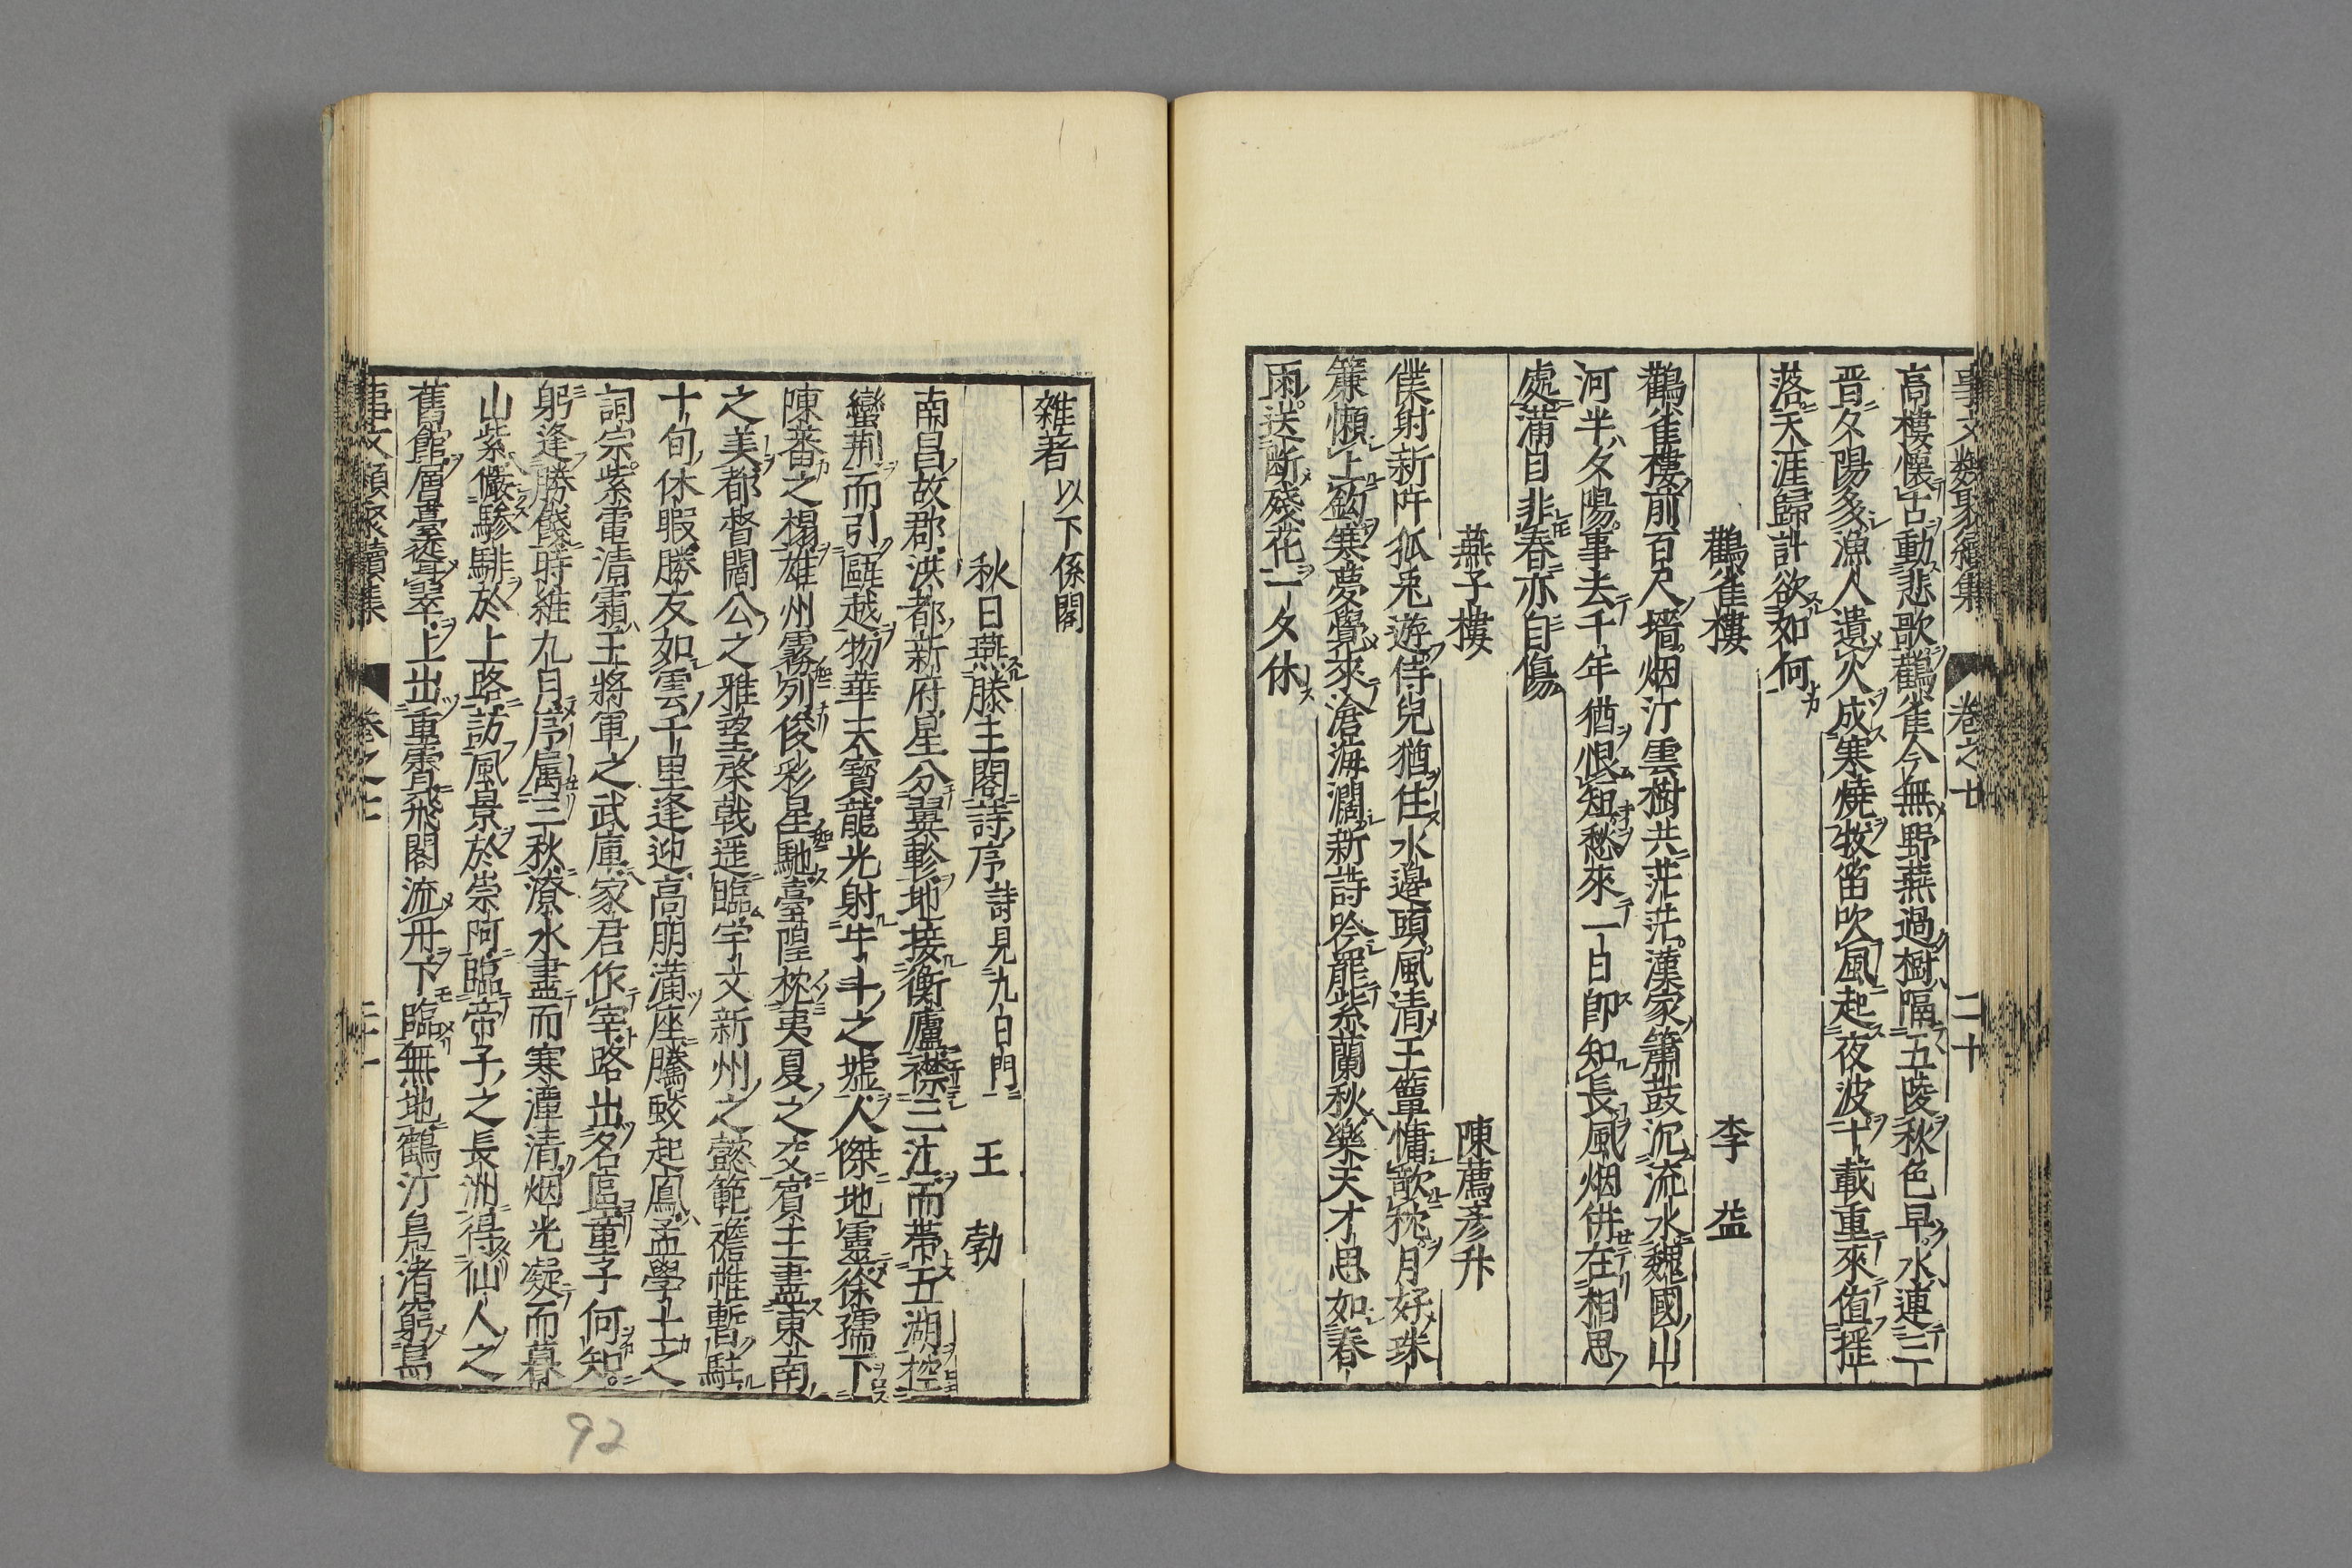 事文類聚續集 卷之十 二十
高樓懷古動悲歌鸛雀今無野燕過樹隔五陵秋色早水連三
晋夕陽多漁人遺火成寒燒牧笛吹風起夜波十載重來值揺
落天涯歸計欲如何
鸛雀樓 李益
鸛雀樓前百尺墻烟汀雲樹共茫茫漢家簫鼓沉流水魏國山
河半夕陽事去千年猶恨短愁來一日即知長風烟併在相思
處滿目非春亦自傷
燕子樓 陳薦彦升
僕射新阡狐兎遊侍兒猶住水邊頭風清玉簟慵欹枕月好珠
簾懶上鈎寒夢覺來滄海濶新詩吟罷紫蘭秋樂天才思如春
雨送断殘花一夕休
雜著 以下係閣
秋日燕滕王閣詩序 詩見九日門 王勃
南昌故郡洪都新府星分翼軫地接衡廬襟三江而帶五湖控
蠻荆而引甌越物華天寳龍光射牛斗之墟人傑地靈徐孺下
陳蕃之榻雄州霧列俊彩星馳臺隍枕夷夏之交賓主盡東南
之美都督閻公之雅望棨戟遥臨宇文新州之懿範襜帷暫駐
十旬休暇勝友如雲千里逢迎高朋滿座騰蛟起鳳孟學士之
詞宗紫電清霜王將軍之武庫家君作宰路出名區童子何知
躬逢勝餞時維九月序屬三秋潦水盡而寒潭清烟光凝而暮
山紫儼驂騑於上路訪風景於崇阿臨帝子之長洲得仙人之
舊館層臺聳翠上出重霄飛閣流丹下臨無地鶴汀鳧渚窮島
事文類聚續集 卷之十 二十一
92